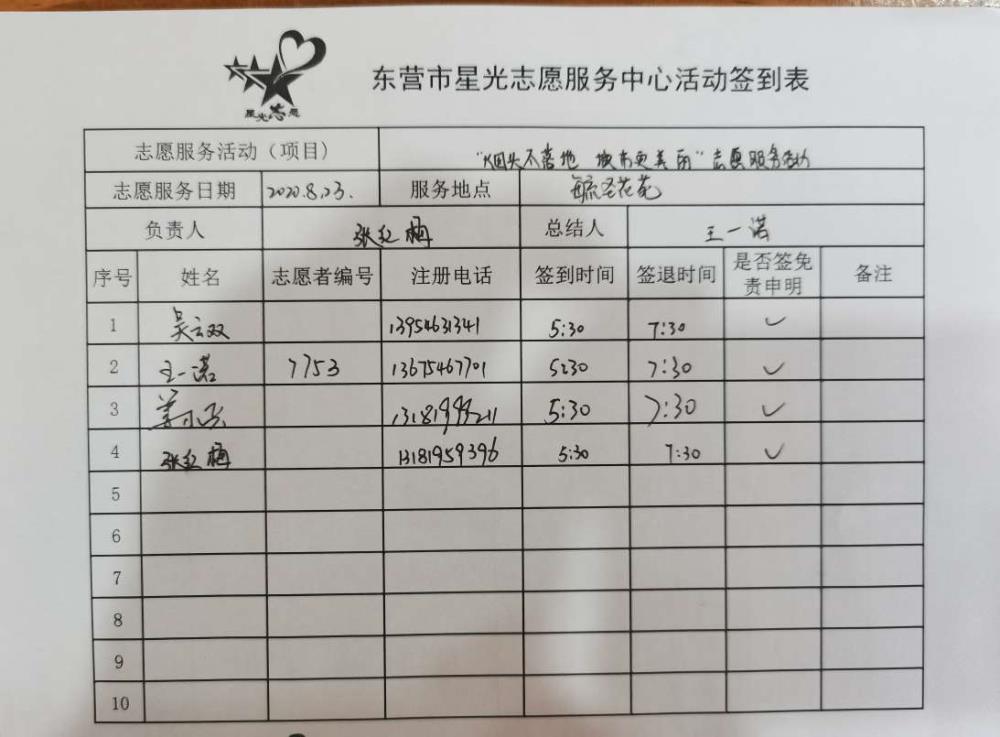 星光志愿
东营市星光志愿服务中心活动签到表
志愿服务活动（项目） "烟头不落地 城市更美丽"志愿服务活动
志愿服务日期 2020.8.23. 服务地点 毓秀花苑
负责人 张红梅 总结人 王一诺
序号 姓名 志愿者编号 注册电话 签到时间 签退时间 是否签免责申明 备注
1 吴云双 13954631341 5:30 7:30 ✓
2 王一诺 7753 13675467701 5:30 7:30 ✓
3 5:30 7:30 ✓
4 张红梅 13181959396 5:30 7:30 ✓
5
6
7
8
9
10